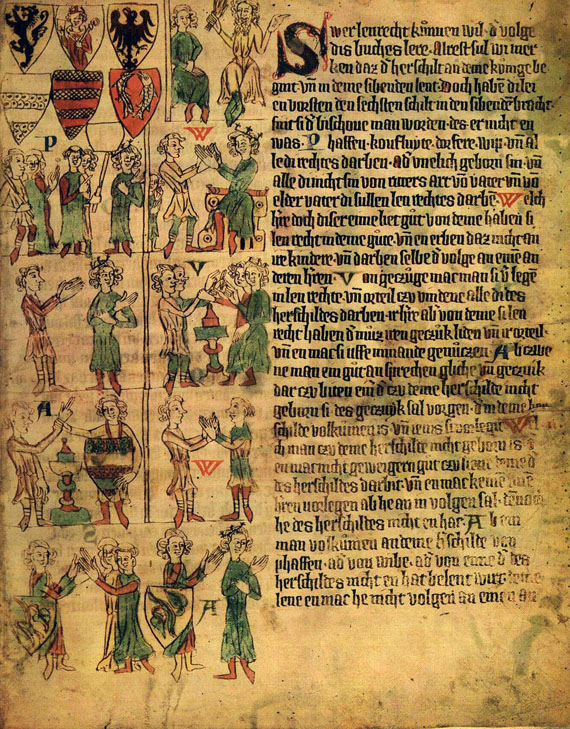 P
W
V
A
W
A
Swer lenrecht kůnnen wil · d̄ volge
dis buches lere · Alrest sul wi mer
ken daz d̄ herschilt an deme kůnige be
gint · vn̄ in deme sibenden lent · Doch habē di lei
en vorsten den sechsten schilt in den sibendē bracht ·
sint si d̄ bischoue man worden · des er nicht en
was · Phaffen · koufluyte · dorfere · wip · vn̄ al
le di rechtes darben · ad̓ vnelich geborn sin · vn̄
alle di nicht sin von ritters art vō vater vn̄ vō
elder vater di sullen len rechtes darbē · Welch
h̓re doch dis̓ eime liet gut von deme haben si
len recht in deme gute · vn̄ en erben daz nicht an
ire kindere · vn̄ darben selbe d̄ volge an eime an
deren h̓ren · Von geczuge mac man si v̓legē
in len rechte · vn̄ orteil czu vindene alle di des
herschildes darben · ir h̓re ab̓ von deme si len
recht haben d̄ muz iren geczuk liden vn̄ ir orteil ·
vn̄ en mac si uffe nimande genuczen · Ab czwe
ne man ein gut an sprechen gliche vn̄ geczuk
dar czu biten ein̓ d̄ czu deme herschilde nicht
geborn is des geczuk sal vorgen · d̄ in deme her
schilde volkumen is · vn̄ ienis si vorlegit · Wel
ch man czu deme herschilde nicht geborn is
en mac nicht geweigern gut czu lene eime d̄
des herschildes darbit · vn̄ en mac keine sine
h̓ren vorlegen ab he an in volgen sal · den och
he des herschildes nicht en hat · Ab ein
man volkumen an deme h̓schilde von
phaffen · ad̓ von wibe · ad̓ von eime d̄ des
herschildes nicht en hat belent wirt deme
lene en mac he nicht volgen an einen an